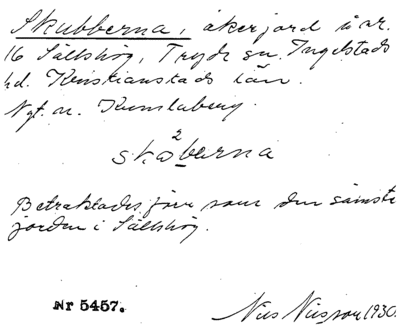 Skubberna, åkerjord å nr.
16 Sältshög, Tryde sn. Ingelstads
hd. Kristianstads län.
Ngt. nr. Kumlaberg.
2
skøberna
Betraktades förr som den sämste
jorden i Sältshög.
Nr 5457.
Nils Nilsson 1930.